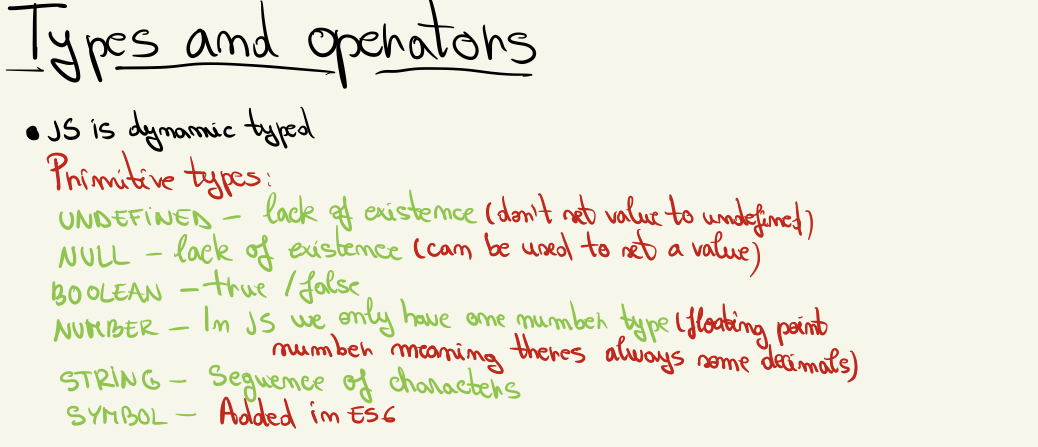 Types and operators
• JS is dynamic typed
Primitive types:
UNDEFINED – lack of existence (don't set value to undefined)
NULL – lack of existence (can be used to set a value)
BOOLEAN – true / false
NUMBER – In JS we only have one number type (floating point
number meaning theres always some decimals)
STRING – Sequence of characters
SYMBOL – Added in ES6